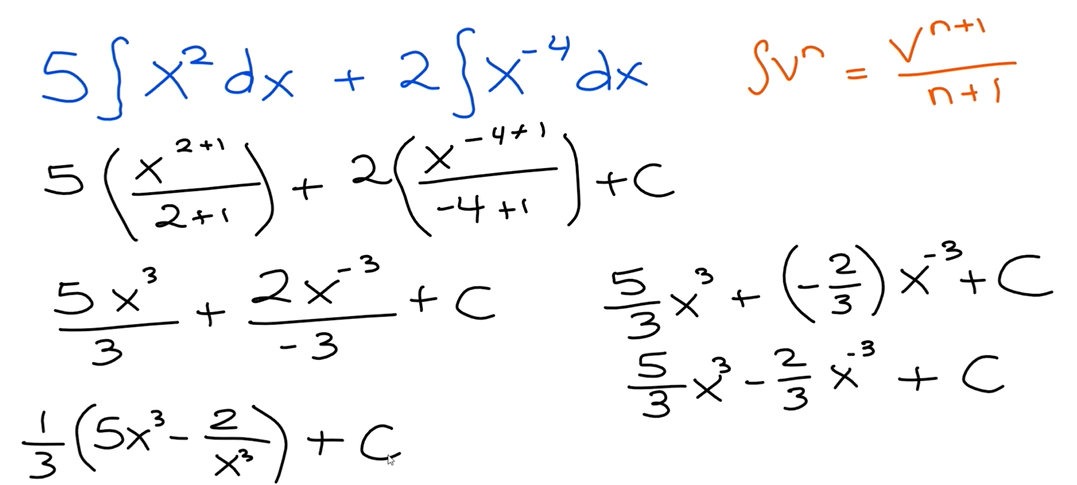 5∫x²dx + 2∫x⁻⁴dx
∫vⁿ = vⁿ⁺¹/n+1
5(x²⁺¹/2+1) + 2(x⁻⁴⁺¹/-4+1) + C
5x³/3 + 2x⁻³/-3 + C
5/3 x³ + (-2/3)x⁻³ + C
5/3 x³ - 2/3 x⁻³ + C
1/3 (5x³ - 2/x³) + C